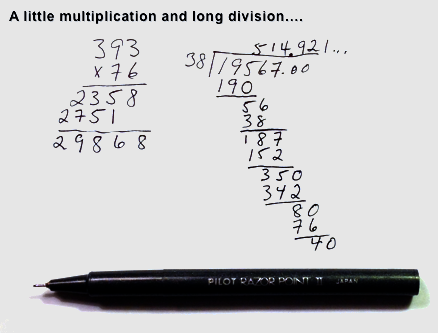 A little multiplication and long division....
393
x 76
2358
2751
29868
514.921...
38 19567.00
190
56
38
187
152
350
342
80
76
40
PILOT RAZOR POINT II JAPAN